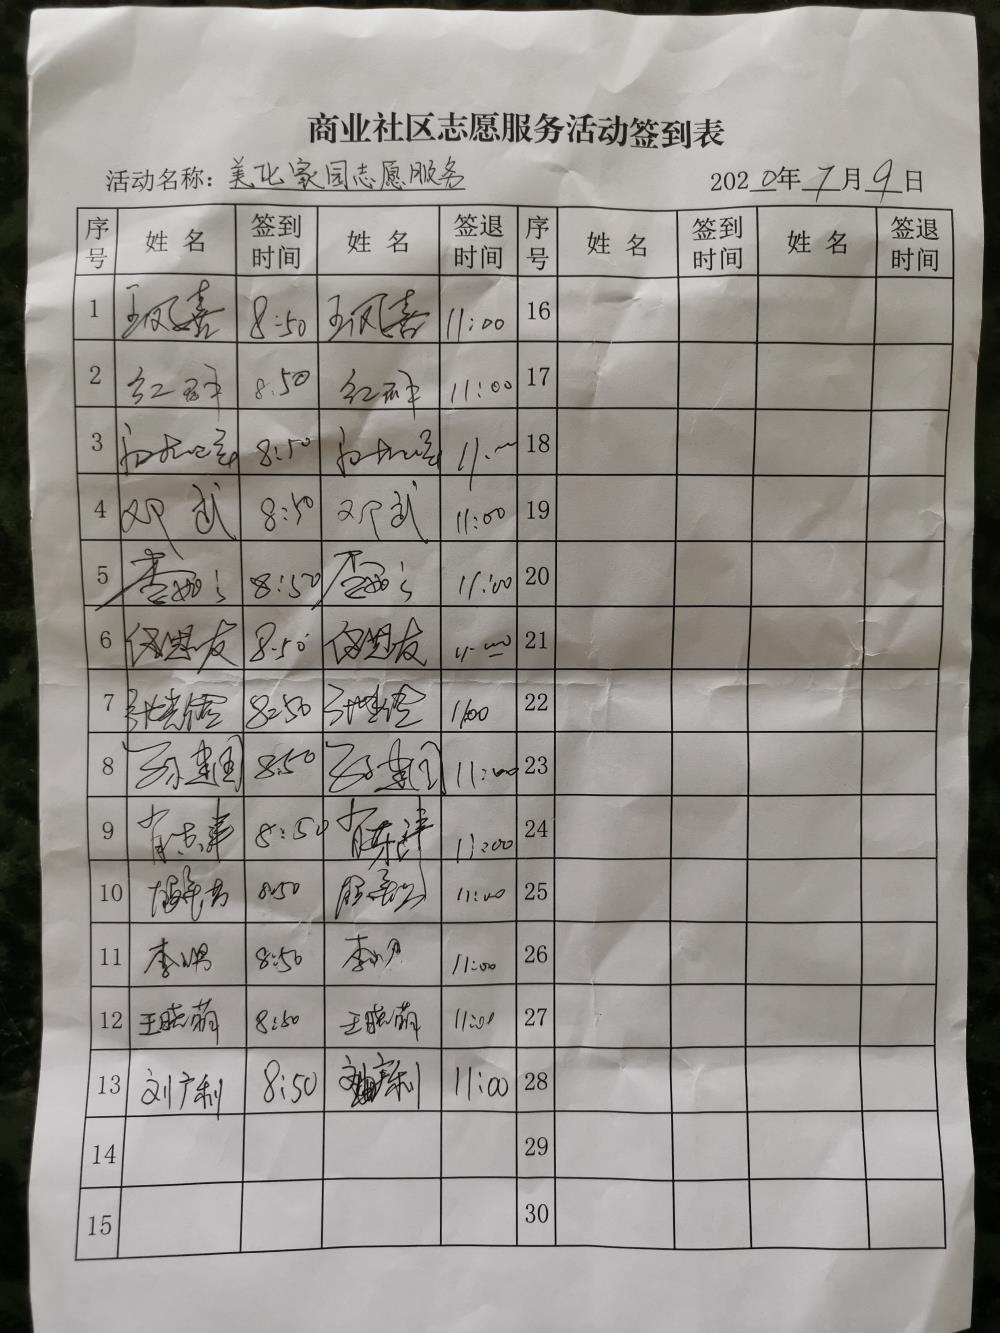 商业社区志愿服务活动签到表
活动名称：美化家园志愿服务 2020年7月9日
序号 姓名 签到时间 姓名 签退时间 序号 姓名 签到时间 姓名 签退时间
1 王凤喜 8:50 王凤喜 11:00 16
2 8:50 11:00 17
3 8:50 11:00 18
4 邓武 8:50 邓武 11:00 19
5 8:50 11:00 20
6 8:50 11:00 21
7 8:50 11:00 22
8 孙建国 8:50 孙建国 11:00 23
9 8:50 11:00 24
10 8:50 11:00 25
11 8:50 11:00 26
12 王晓萌 8:50 王晓萌 11:00 27
13 刘广利 8:50 刘广利 11:00 28
14 29
15 30